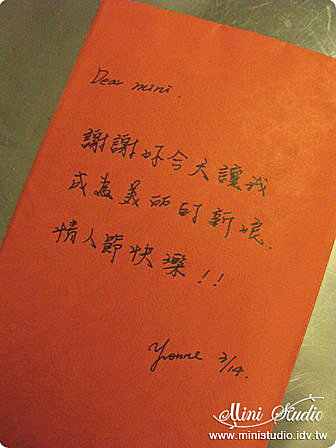 Dear mini.
謝謝妳今天讓我
成為美麗的新娘.
情人節快樂!!
Yvonne 2/14.
Mini Studio
www.ministudio.idv.tw